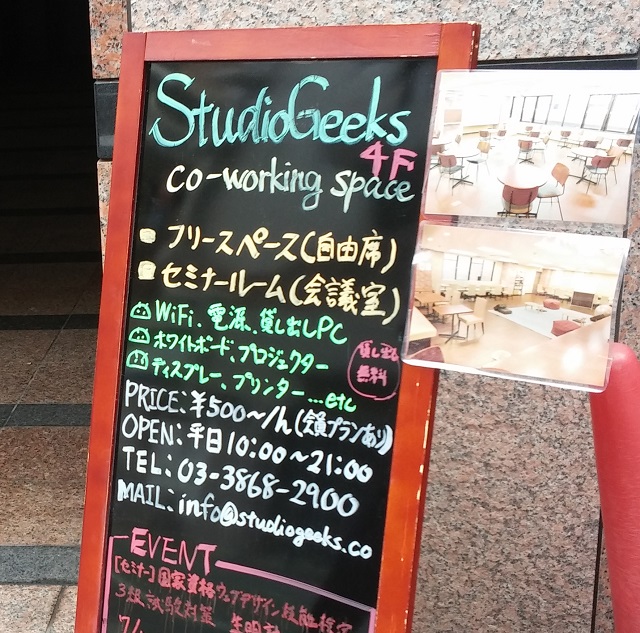 StudioGeeks
4F
co-working space
フリースペース(自由席)
セミナールーム(会議室)
WiFi、電源、貸し出しPC
ホワイトボード、プロジェクター
ディスプレー、プリンター…etc
貸し出し
無料
PRICE:¥500〜/h(会員プランあり)
OPEN:平日10:00〜21:00
TEL:03-3868-2900
MAIL:info@studiogeeks.co
EVENT
[セミナー]国家資格ウェブデザイン技能検定
3級試験対策
7/